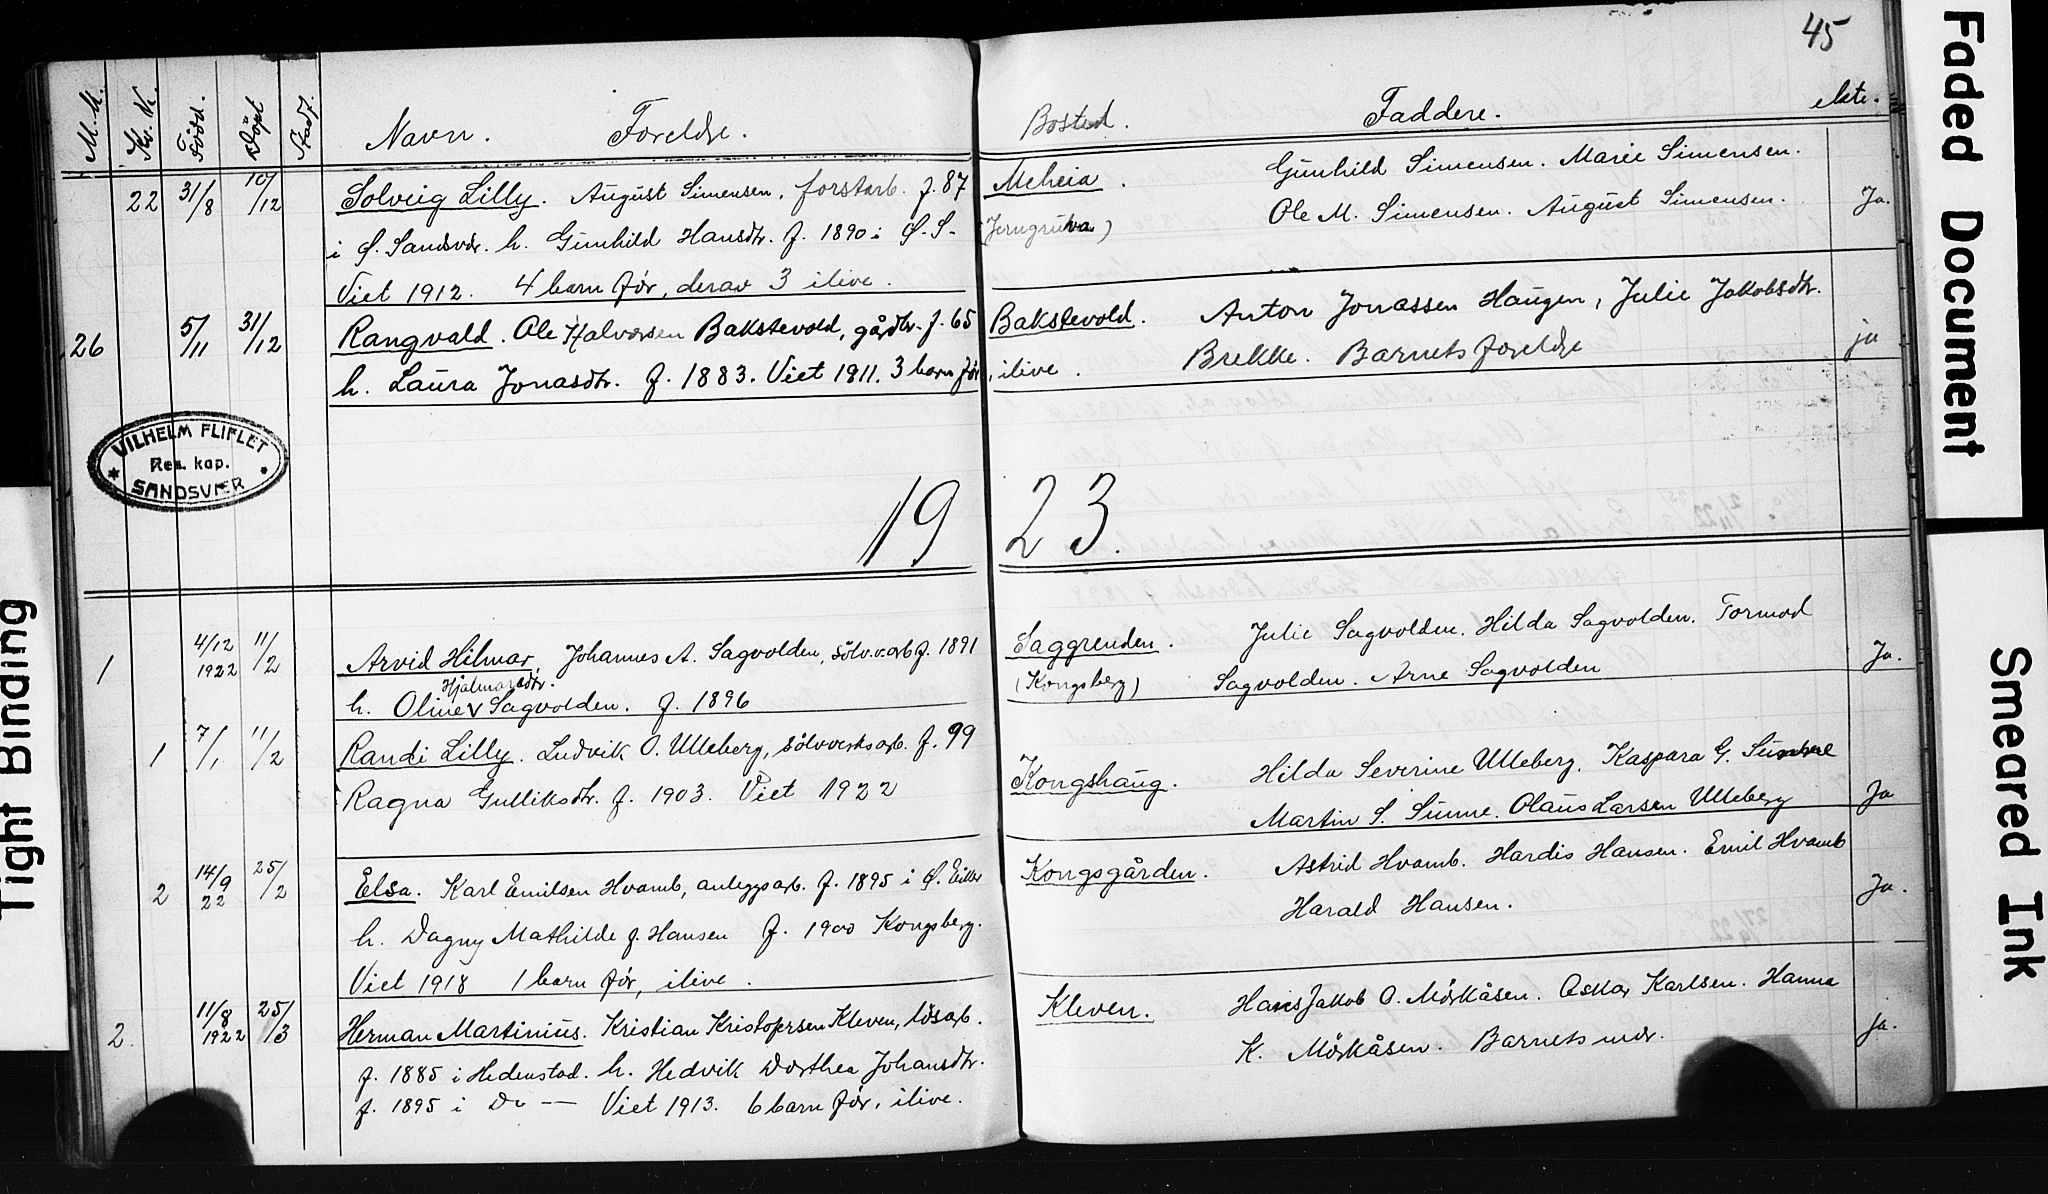 45
M.K. Kv.K. Född. Döpt Stadf. Navn. Foreldre. Bosted. Faddere. ekte.
22 31/8 10/12 Solveig Lilly. August Simensen, forstarb. f. 87 Meheia. Gunhild Simensen. Marie Simensen.
i Ø. Sandsvær. h. Gunhild Hansdtr. f. 1890 i Ø.S. (Jerngruva) Ole M. Simensen. August Simensen. Ja.
Viet 1912. 4 barn før, derav 3 ilive.
26 5/11 31/12 Rangvald. Ole Halvorsen Bakstevold, gårdbr. f. 65 Bakstevold. Anton Jonassen Haugen, Julie Jakobsdtr.
h. Laura Jonasdtr. f. 1883. Viet 1911. 3 barn før, ilive. Brekke. Barnets foreldre ja
VILHELM FLIFLET
Res. kap.
SANDSVÆR
1923.
1 4/12 1922 11/2 Arvid Hilmar, Johannes A. Sagvolden, sölv.v.arb f. 1891 Saggrenden. Julie Sagvolden. Hilda Sagvolden. Tormod
Hjalmarsdtr.
h. Oline v Sagvolden. f. 1896 (Kongsberg) Sagvolden. Arne Sagvolden Ja.
1 7/1 11/2 Randi Lilly. Ludvik O. Ulleberg, sölvverksarb. f. 99 Kongshaug. Hilda Severine Ulleberg. Kaspara G.
Ragna Gulliksdtr. f. 1903. Viet 1922 Martin S. Sunne. Olaus Larsen Ulleberg Ja
2 14/9 22 25/2 Elsa. Karl Emilsen Hvamb, anleggsarb. f. 1895 i Ø. Eiker Kongsgården. Astrid Hvamb. Hardis Hansen. Emil Hvamb
h. Dagny Mathilde f. Hansen f. 1900 Kongsberg. Harald Hansen. Ja.
Viet 1918 1 barn før, ilive.
2. 11/8 1922 25/3 Herman Martinius. Kristian Kristofersen Kleven, lösarb. Kleven. Hans Jakob O. Mörkåsen. Oskar Karlsen. Hanna
f. 1885 i Hedenstad. h. Hedvik Dorthea Johansdtr. K. Mörkåsen. Barnets mor. ja.
f. 1895 i Do — Viet 1913. 6 barn før, ilive.
Faded Document
Smeared Ink
Tight Binding